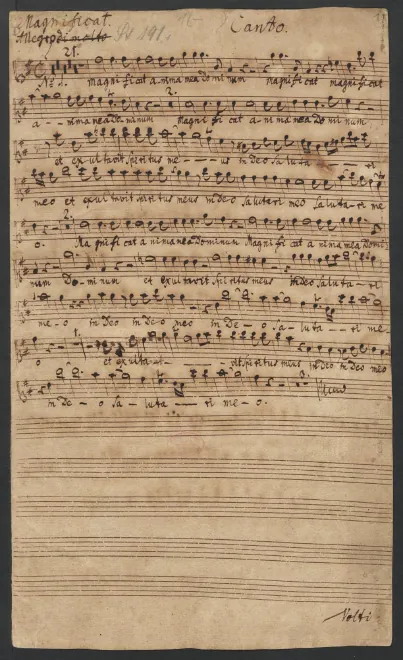 Magnificat.
Allegro di molto
Canto.
21.
No. 1. Magnificat anima mea dominum Magnificat magnificat
2.
a - - nima mea Dominum Magnificat anima mea Dominum
et exultavit spiritus me - - - us in deo saluta - - - ri
meo et exultavit spiritus meus in deo salutari meo saluta - ri me
2.
o. Magnificat anima mea Dominum Magnificat anima mea Domi
num Do - minum et exultavit spiritus meus in deo saluta - ri
me - o in Deo in deo meo in De - o sa - luta - - ri me
1.
o et exulta - vit - - - - spiritus meus in deo in deo meo
in De - o sa - luta - - ri me - o.
Volti